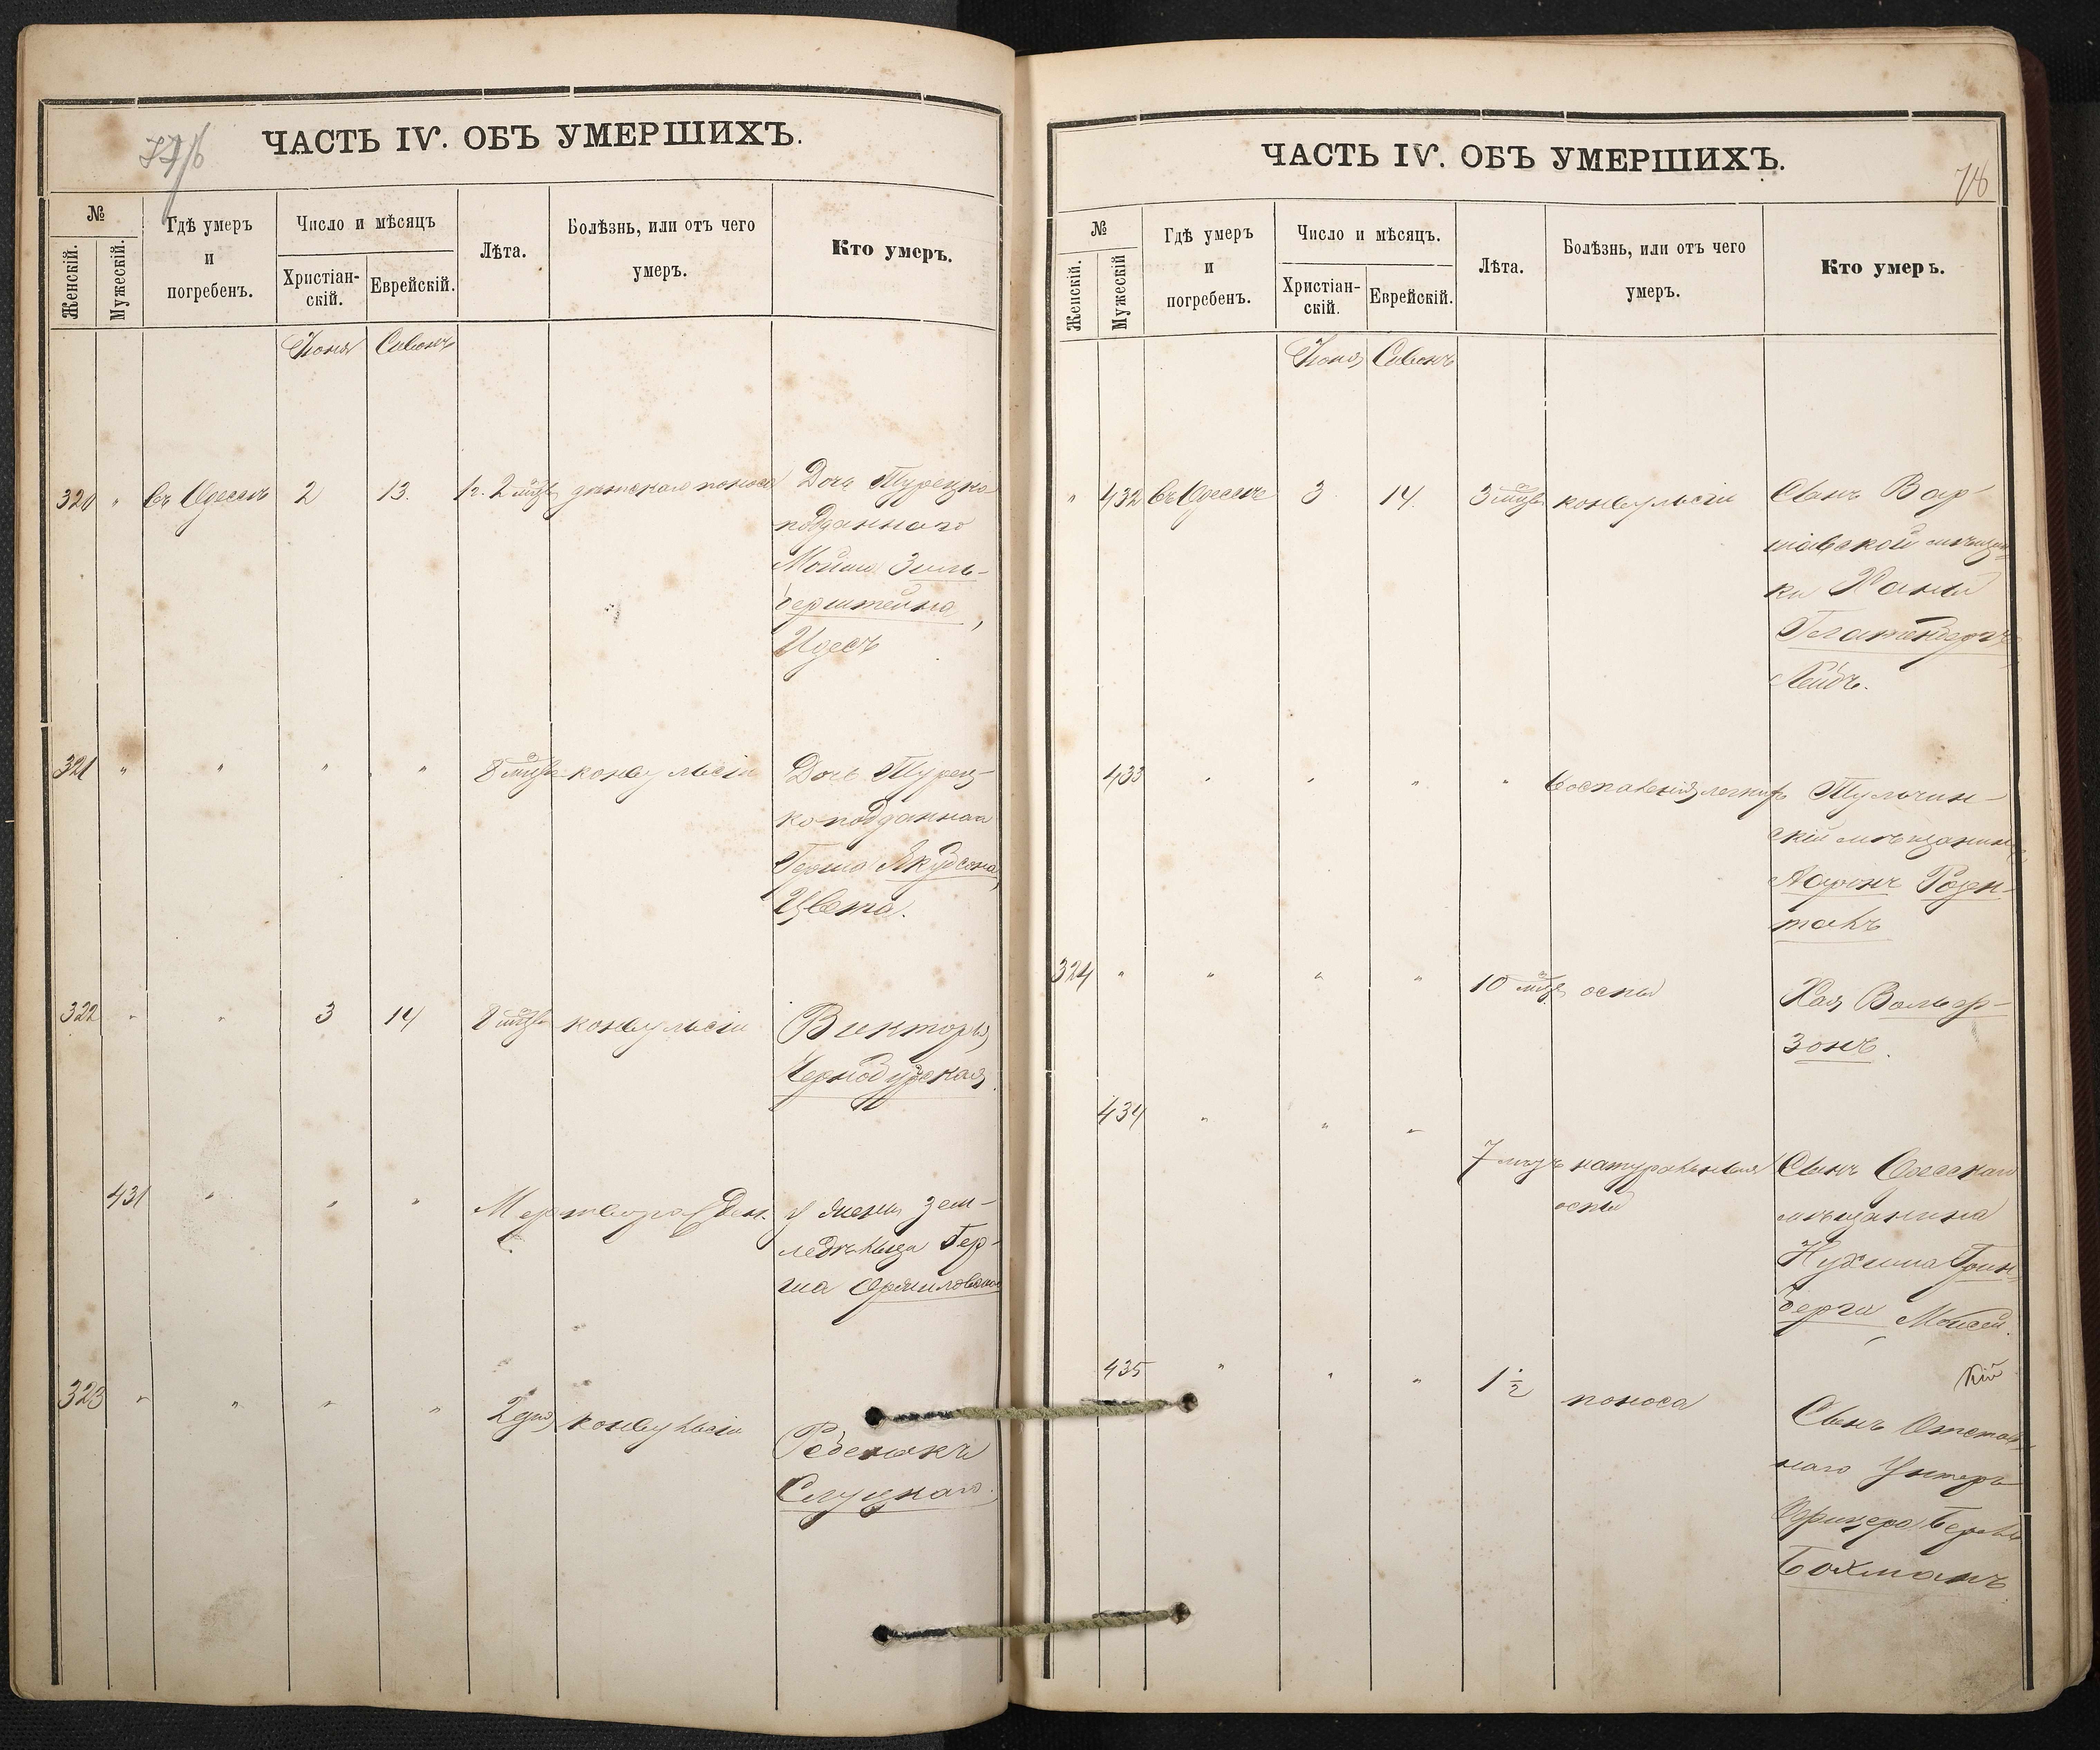 ЧАСТЬ IV. ОБЪ УМЕРШИХЪ.
№
Женскій.
Мужескій.
Гдѣ умеръ
и
погребенъ.
Число и мѣсяцъ
Христіан-
скій.
Еврейскій.
Лѣта.
Болѣзнь, или отъ чего
умеръ.
Кто умеръ.
Іюня Сивонъ
320 " Въ Одессѣ 2 13. 1 г. 2 мѣц. дѣтскаго поноса Дочь Турецко
подданнаго
Мойши Зиль-
берштейна,
Идесъ
321 " " " " 8 мѣц. конвульсіи Дочь Турец-
коподданнаго
Герша Якубсона,
Цвета.
322 " " 3 14 8 мѣц. конвульсіи Викторія
431 " " " Мерворожден. у жены зем-
ледѣльца Гер-
ша
323 " " " " 2 дня конвульсіи Ребенокъ
Слуцкаго.
ЧАСТЬ IV. ОБЪ УМЕРШИХЪ.
78
№
Женскій.
Мужескій
Гдѣ умеръ
и
погребенъ.
Число и мѣсяцъ.
Христіан-
скій.
Еврейскій.
Лѣта.
Болѣзнь, или отъ чего
умеръ.
Кто умеръ.
Іюня Сивонъ
" 432 Въ Одессѣ 3 14. 3 мѣц. конвульсіи Сынъ Вар-
шавской мѣщан-
ки Ханы
Лейбъ.
433 " " " " воспаленія легкихъ Тульчин-
скій мѣщанинъ
Ааронъ Розен-
талъ
324 " " " " 10 мѣц. оспы Хая Вольф-
зонъ.
434 " " "
7 мѣц. натуральныя Сынъ Одесскаго
оспы мѣщанина
Нухима Грин-
берга, Мойсей.
435 " " " 1½ поноса
Сынъ Отстав-
наго Унтеръ
Офицера Берко
Бохманъ